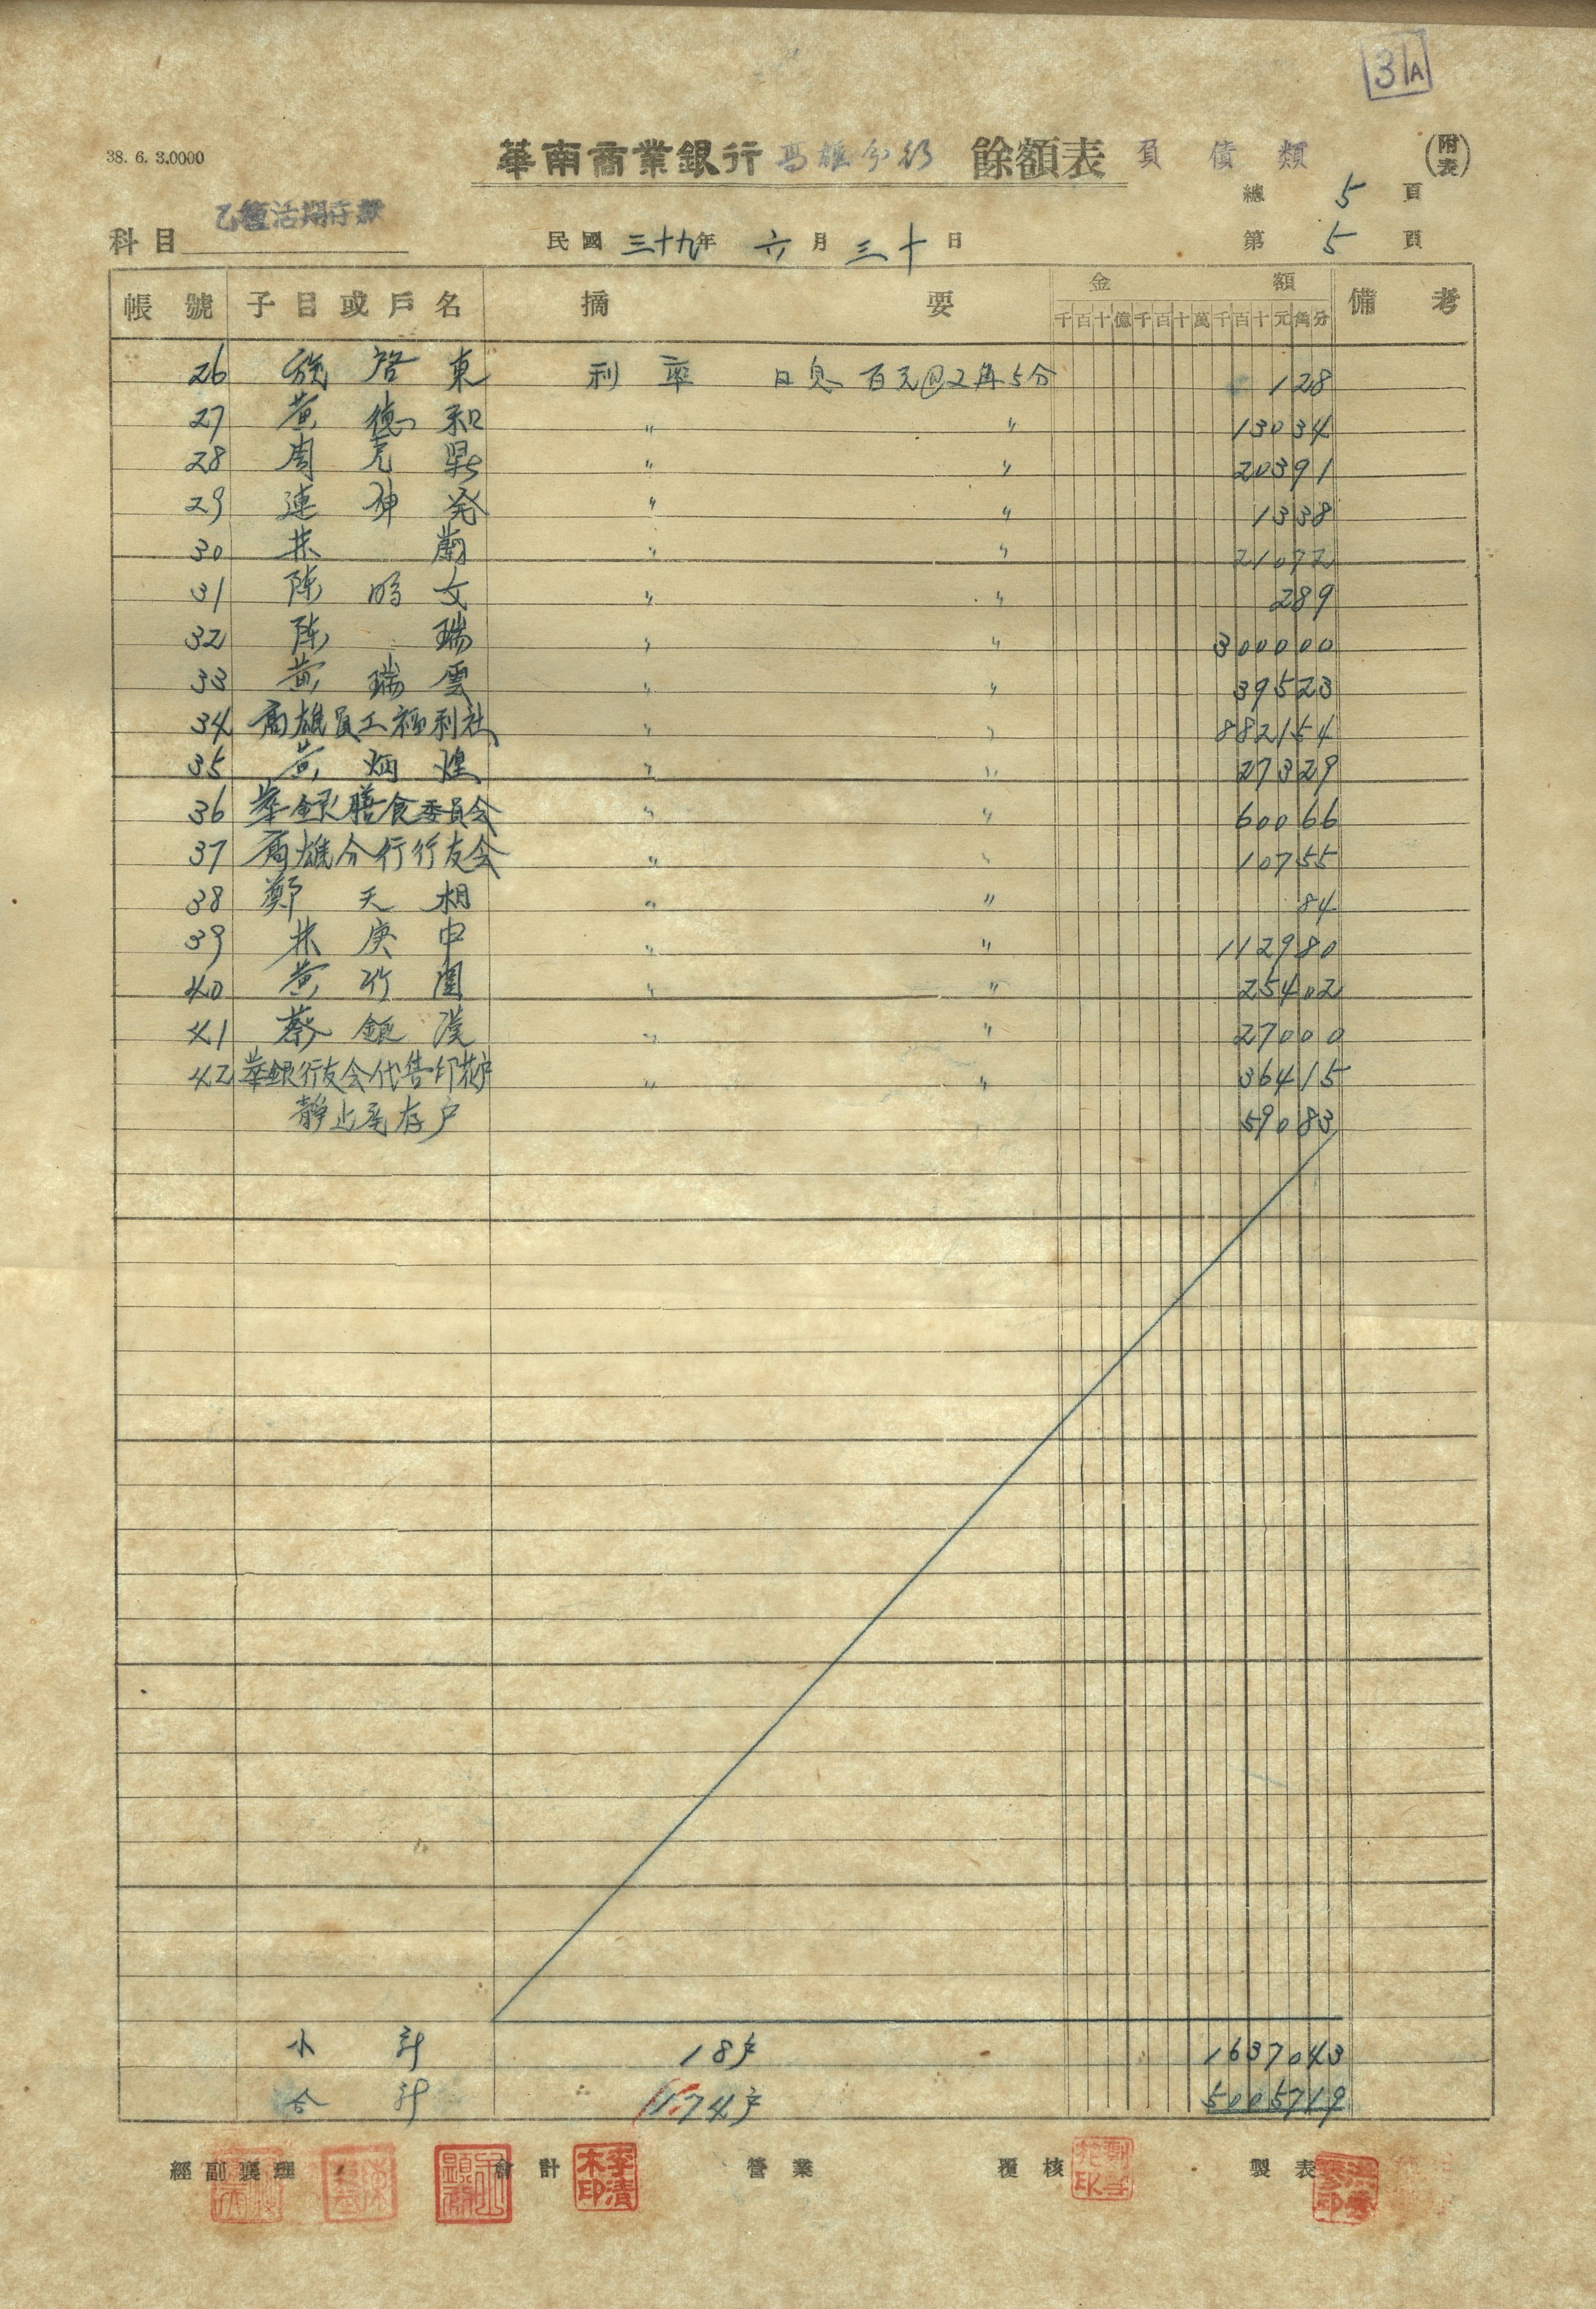 31A
38. 6. 3.0000
華南商業銀行 高雄分行 餘額表 負債類 (附表)
總 5 頁
科目 乙種活期存款 民國 三十九年 六月 三十日 第 5 頁
帳號 子目或戶名 摘要 金額 備考
千百十億千百十萬千百十元角分
26 啓東 利率 日息 百元@2角5分 128
27 黄德和 〃 〃 13034
28 周克 〃 〃 20391
29 連伸発 〃 〃 1338
30 林蘭 〃 〃 21072
31 陈鸣文 〃 〃 289
32 陈瑞 〃 〃 300000
33 黄瑞雲 〃 〃 39523
34 高雄員工福利社 〃 〃 882154
35 黄炳煌 〃 〃 27329
36 華銀膳食委員会 〃 〃 60066
37 高雄分行行友会 〃 〃 10755
38 鄭天相 〃 〃 84
39 林庚申 〃 〃 112980
40 黄竹園 〃 〃 25402
41 蔡鎮漢 〃 〃 27000
42 華銀行友会代售印花户 〃 〃 36415
靜止尾存户 59083
小計 18户 1637043
合計 174户 5005719
經副襄理 會計 營業 覆核 製表
李清木印